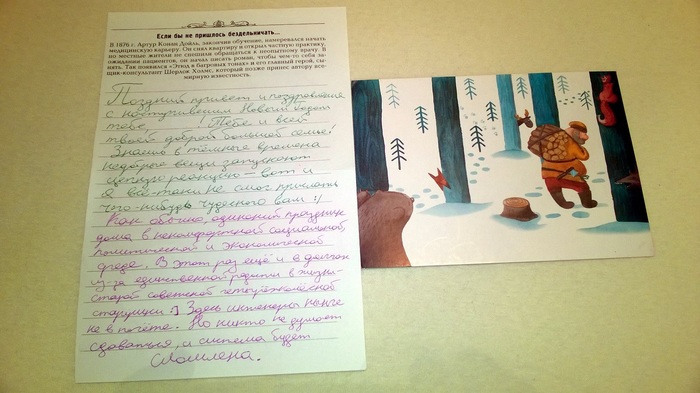 Если бы не пришлось бездельничать...
В 1876 г. Артур Конан Дойль, закончив обучение, намеревался начать
медицинскую карьеру. Он снял квартиру и открыл частную практику,
но местные жители не спешили обращаться к неопытному врачу. В
ожидании пациентов, он начал писать роман, чтобы чем-то себя за-
нять. Так появился «Этюд в багровых тонах» и его главный герой, сы-
щик-консультант Шерлок Холмс, который позже принес автору все-
мирную известность.
Поздний привет и поздравления
с наступившим Новым годом
тебе, ! Тебе и всей
твоей доброй большой семье!
Знаешь в тёмные времена
недобрые вещи запускают
цепную реакцию – вот и
я всё-таки не смог прислать
чего-нибудь чудесного вам :/
Как обычно, одинокий праздник
дома в некомфортной социальной,
политической и экономической
среде. В этот раз ещё и в долгах
из-за единственной в жизни–
старой советской
старушки :] Здесь инженеры нынче
не в почёте. Но никто не думает
сдаваться, и система будет
сломлена.